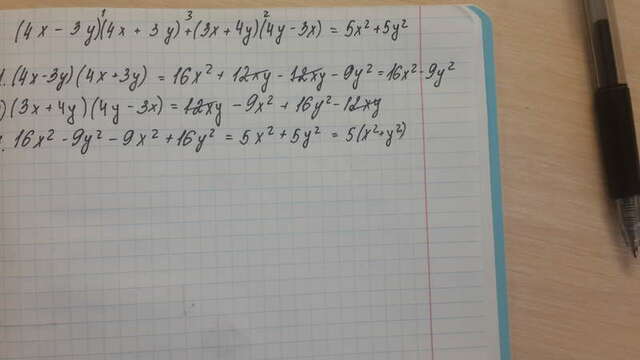 (4x - 3y)¹(4x + 3y)³+(3x + 4y)²(4y - 3x) = 5x² + 5y²
1. (4x - 3y)(4x + 3y) = 16x² + 12xy - 12xy - 9y² = 16x² - 9y²
) (3x + 4y)(4y - 3x) = 12xy - 9x² + 16y² - 12xy
. 16x² - 9y² - 9x² + 16y² = 5x² + 5y² = 5(x² + y²)